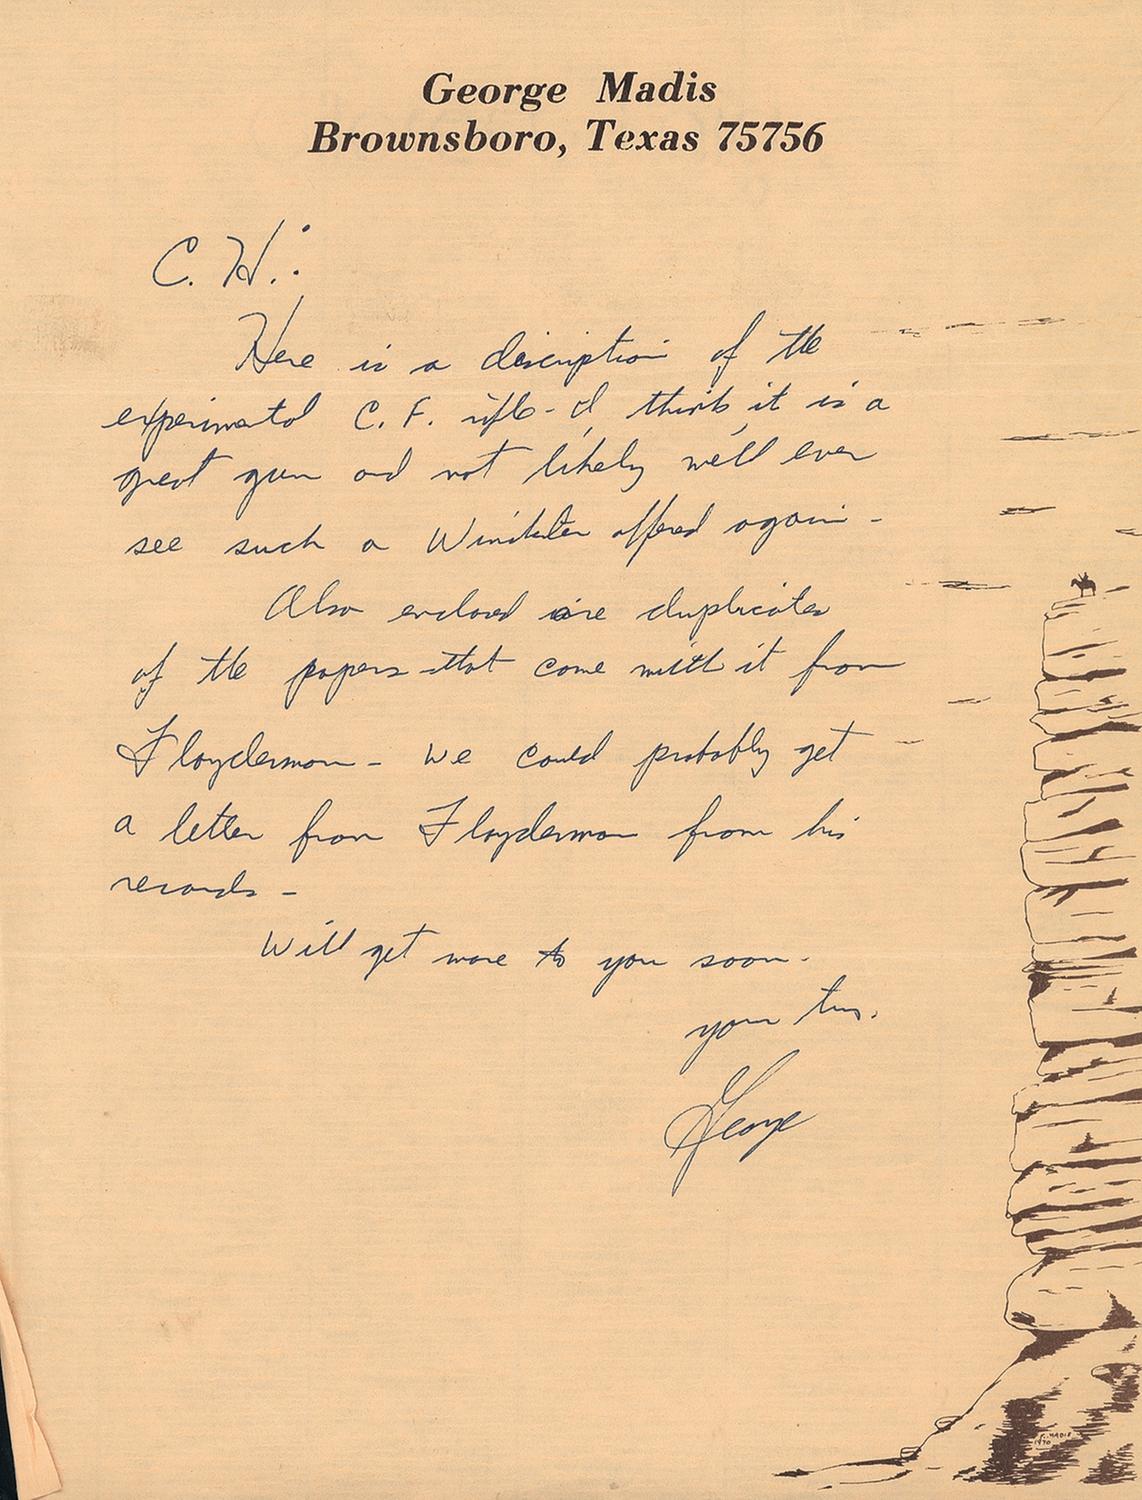 George Madis
Brownsboro, Texas 75756
C. H.:
Here is a description of the
experimental C. F. rifle - I think it is a
great gun and not likely we'll ever
see such a Winchester offered again -
Also enclosed are duplicates
of the papers that came with it from
Flayderman - We could probably get
a letter from Flayderman from his
records -
Will get more to you soon.
your
George
G. MADIS
1970